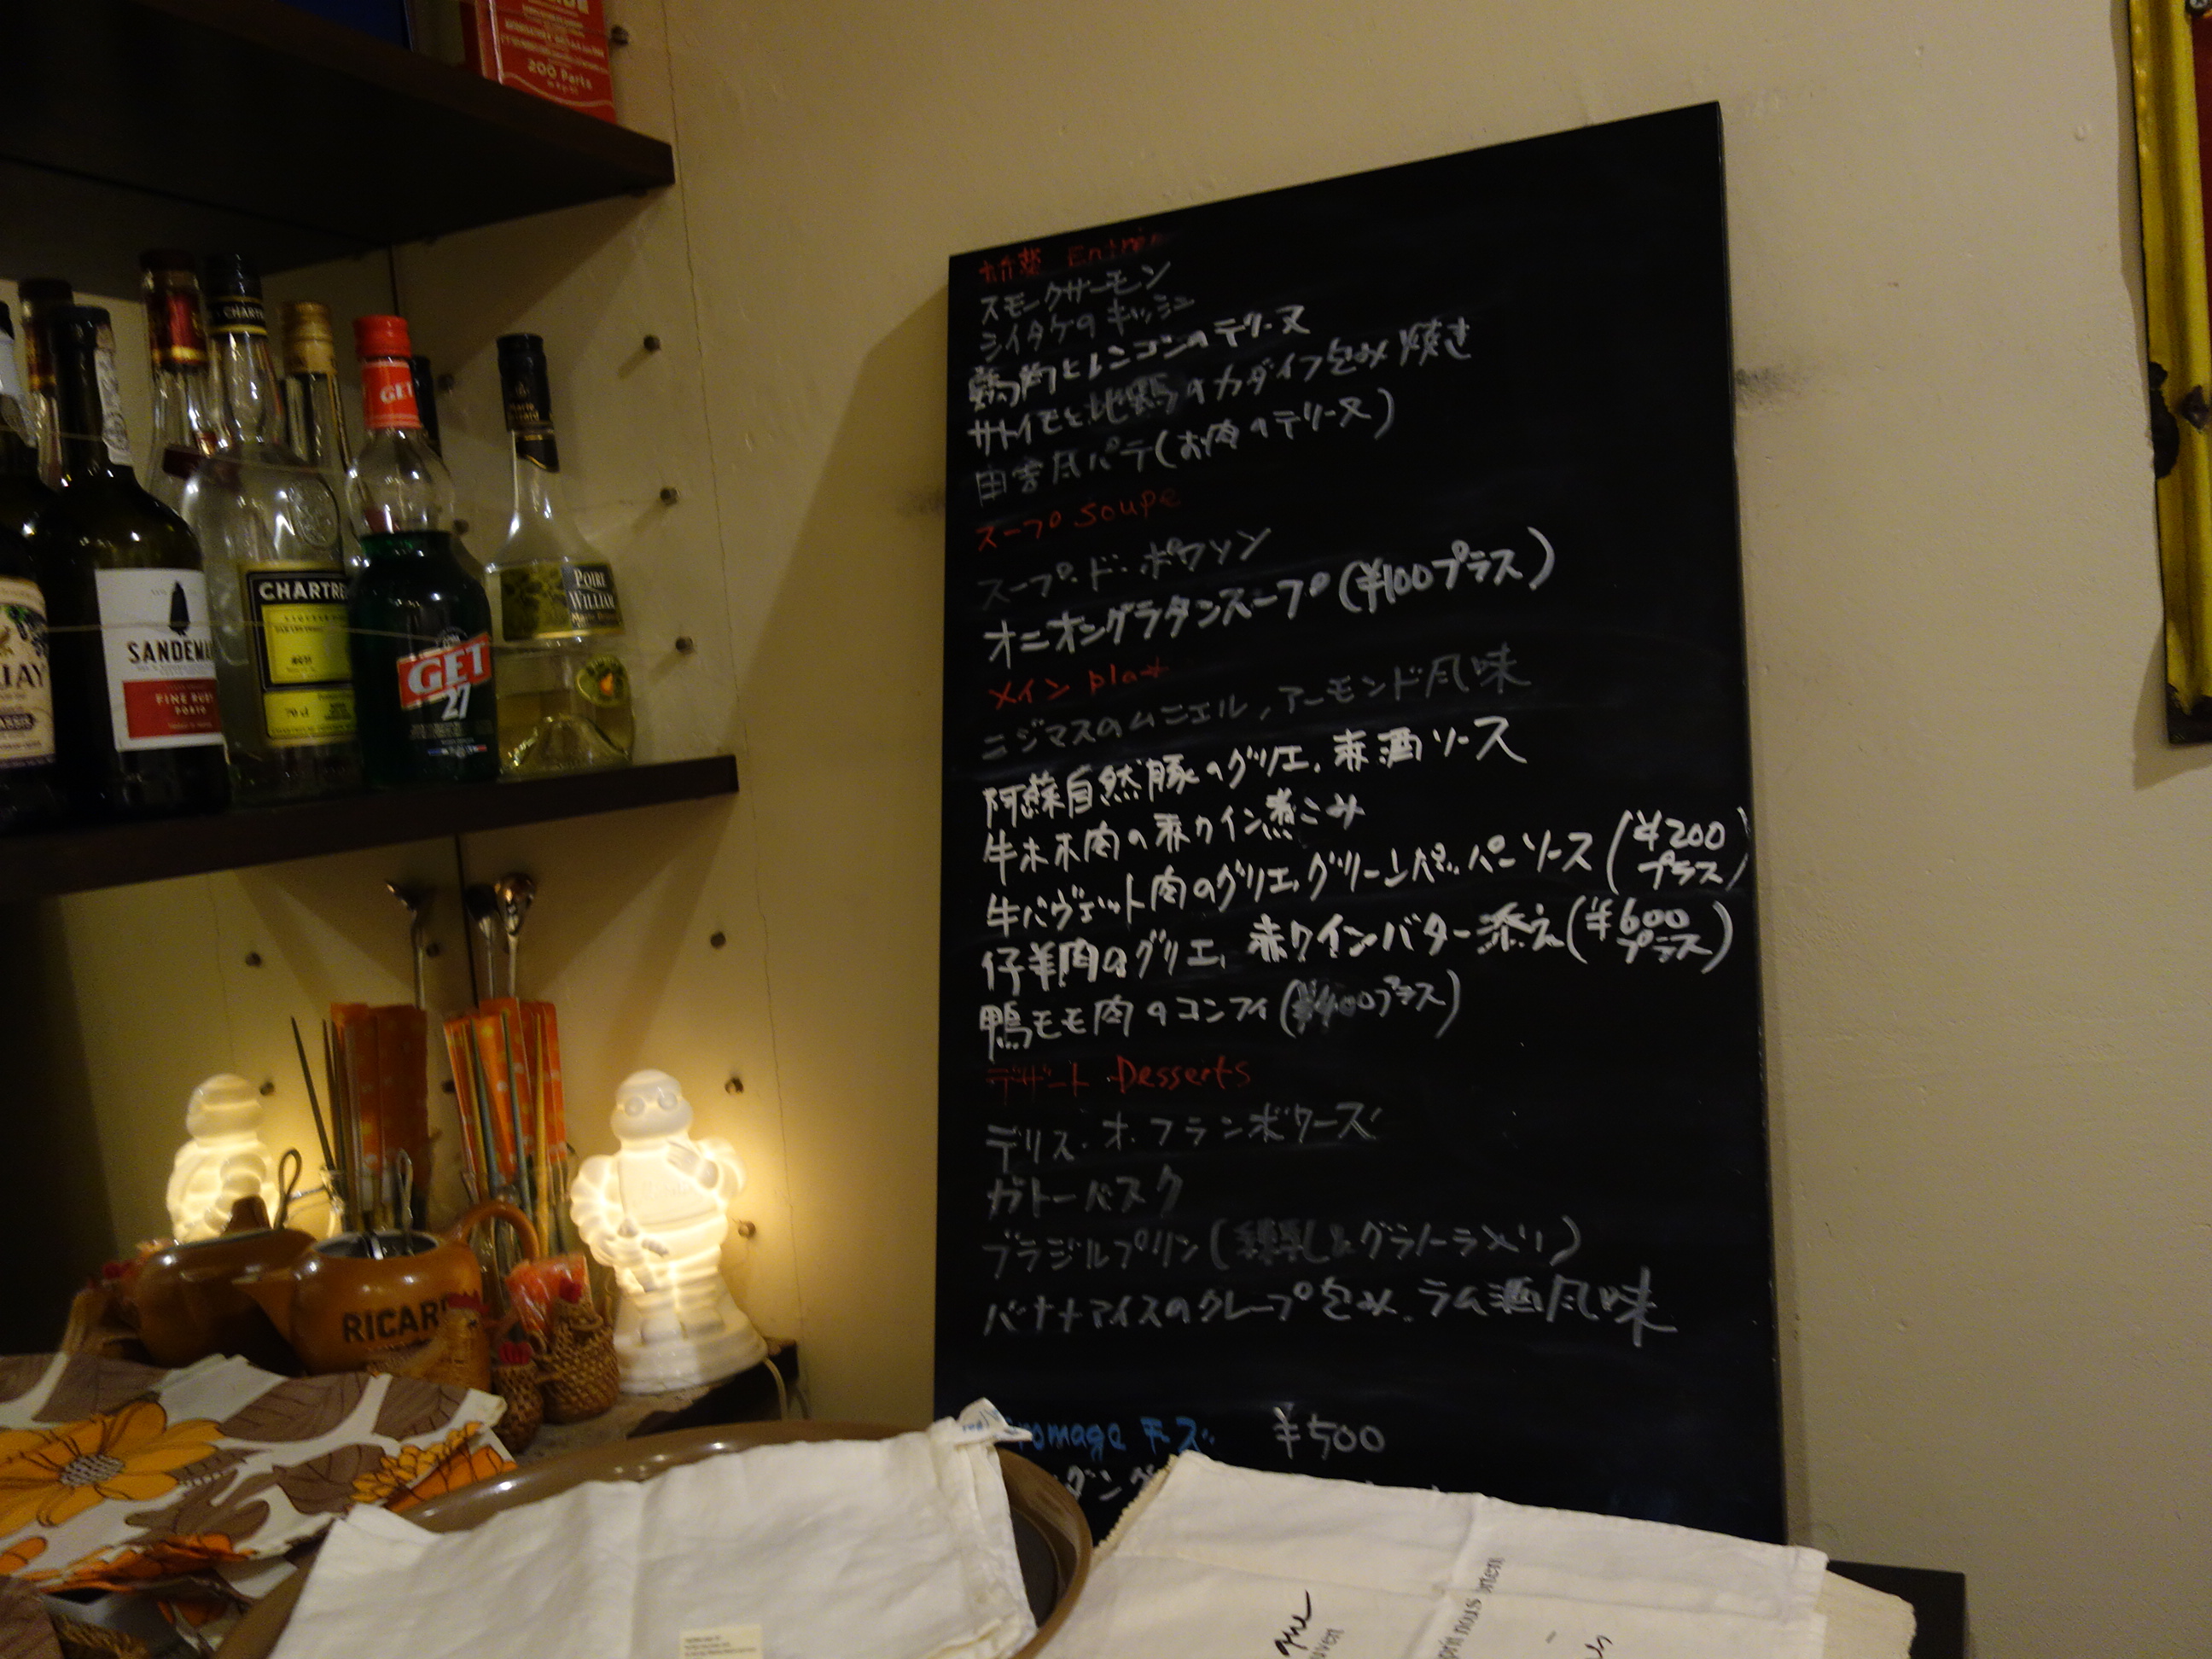 200 Parts
CHARTRE
GET
SANDEMA
FINE RUBY
PORTO
CHARTRE
70 cl
GET
27
POIRE
WILLIAM
RICAR
前菜 Entrée
スモークサーモン
シイタケのキッシュ
鶏肉とレンコンのテリーヌ
サトイモと地鶏のカダイフ包み焼き
田舎風パテ(お肉のテリーヌ)
スープ Soupe
スープ・ド・ポワソン
オニオングラタンスープ(¥100プラス)
メイン plat
ニジマスのムニエル,アーモンド風味
阿蘇自然豚のグリエ,赤酒ソース
牛ホホ肉の赤ワイン煮こみ
牛バヴェット肉のグリエ,グリーンペッパーソース(¥200プラス)
仔羊肉のグリエ,赤ワインバター添え(¥600プラス)
鴨モモ肉のコンフィ(¥400プラス)
デザート Desserts
デリス・オ・フランボワーズ
ガトーバスク
ブラジルプリン(練乳&グラノーラ入り)
バナナアイスのクレープ包み,ラム酒風味
romage チーズ ¥500